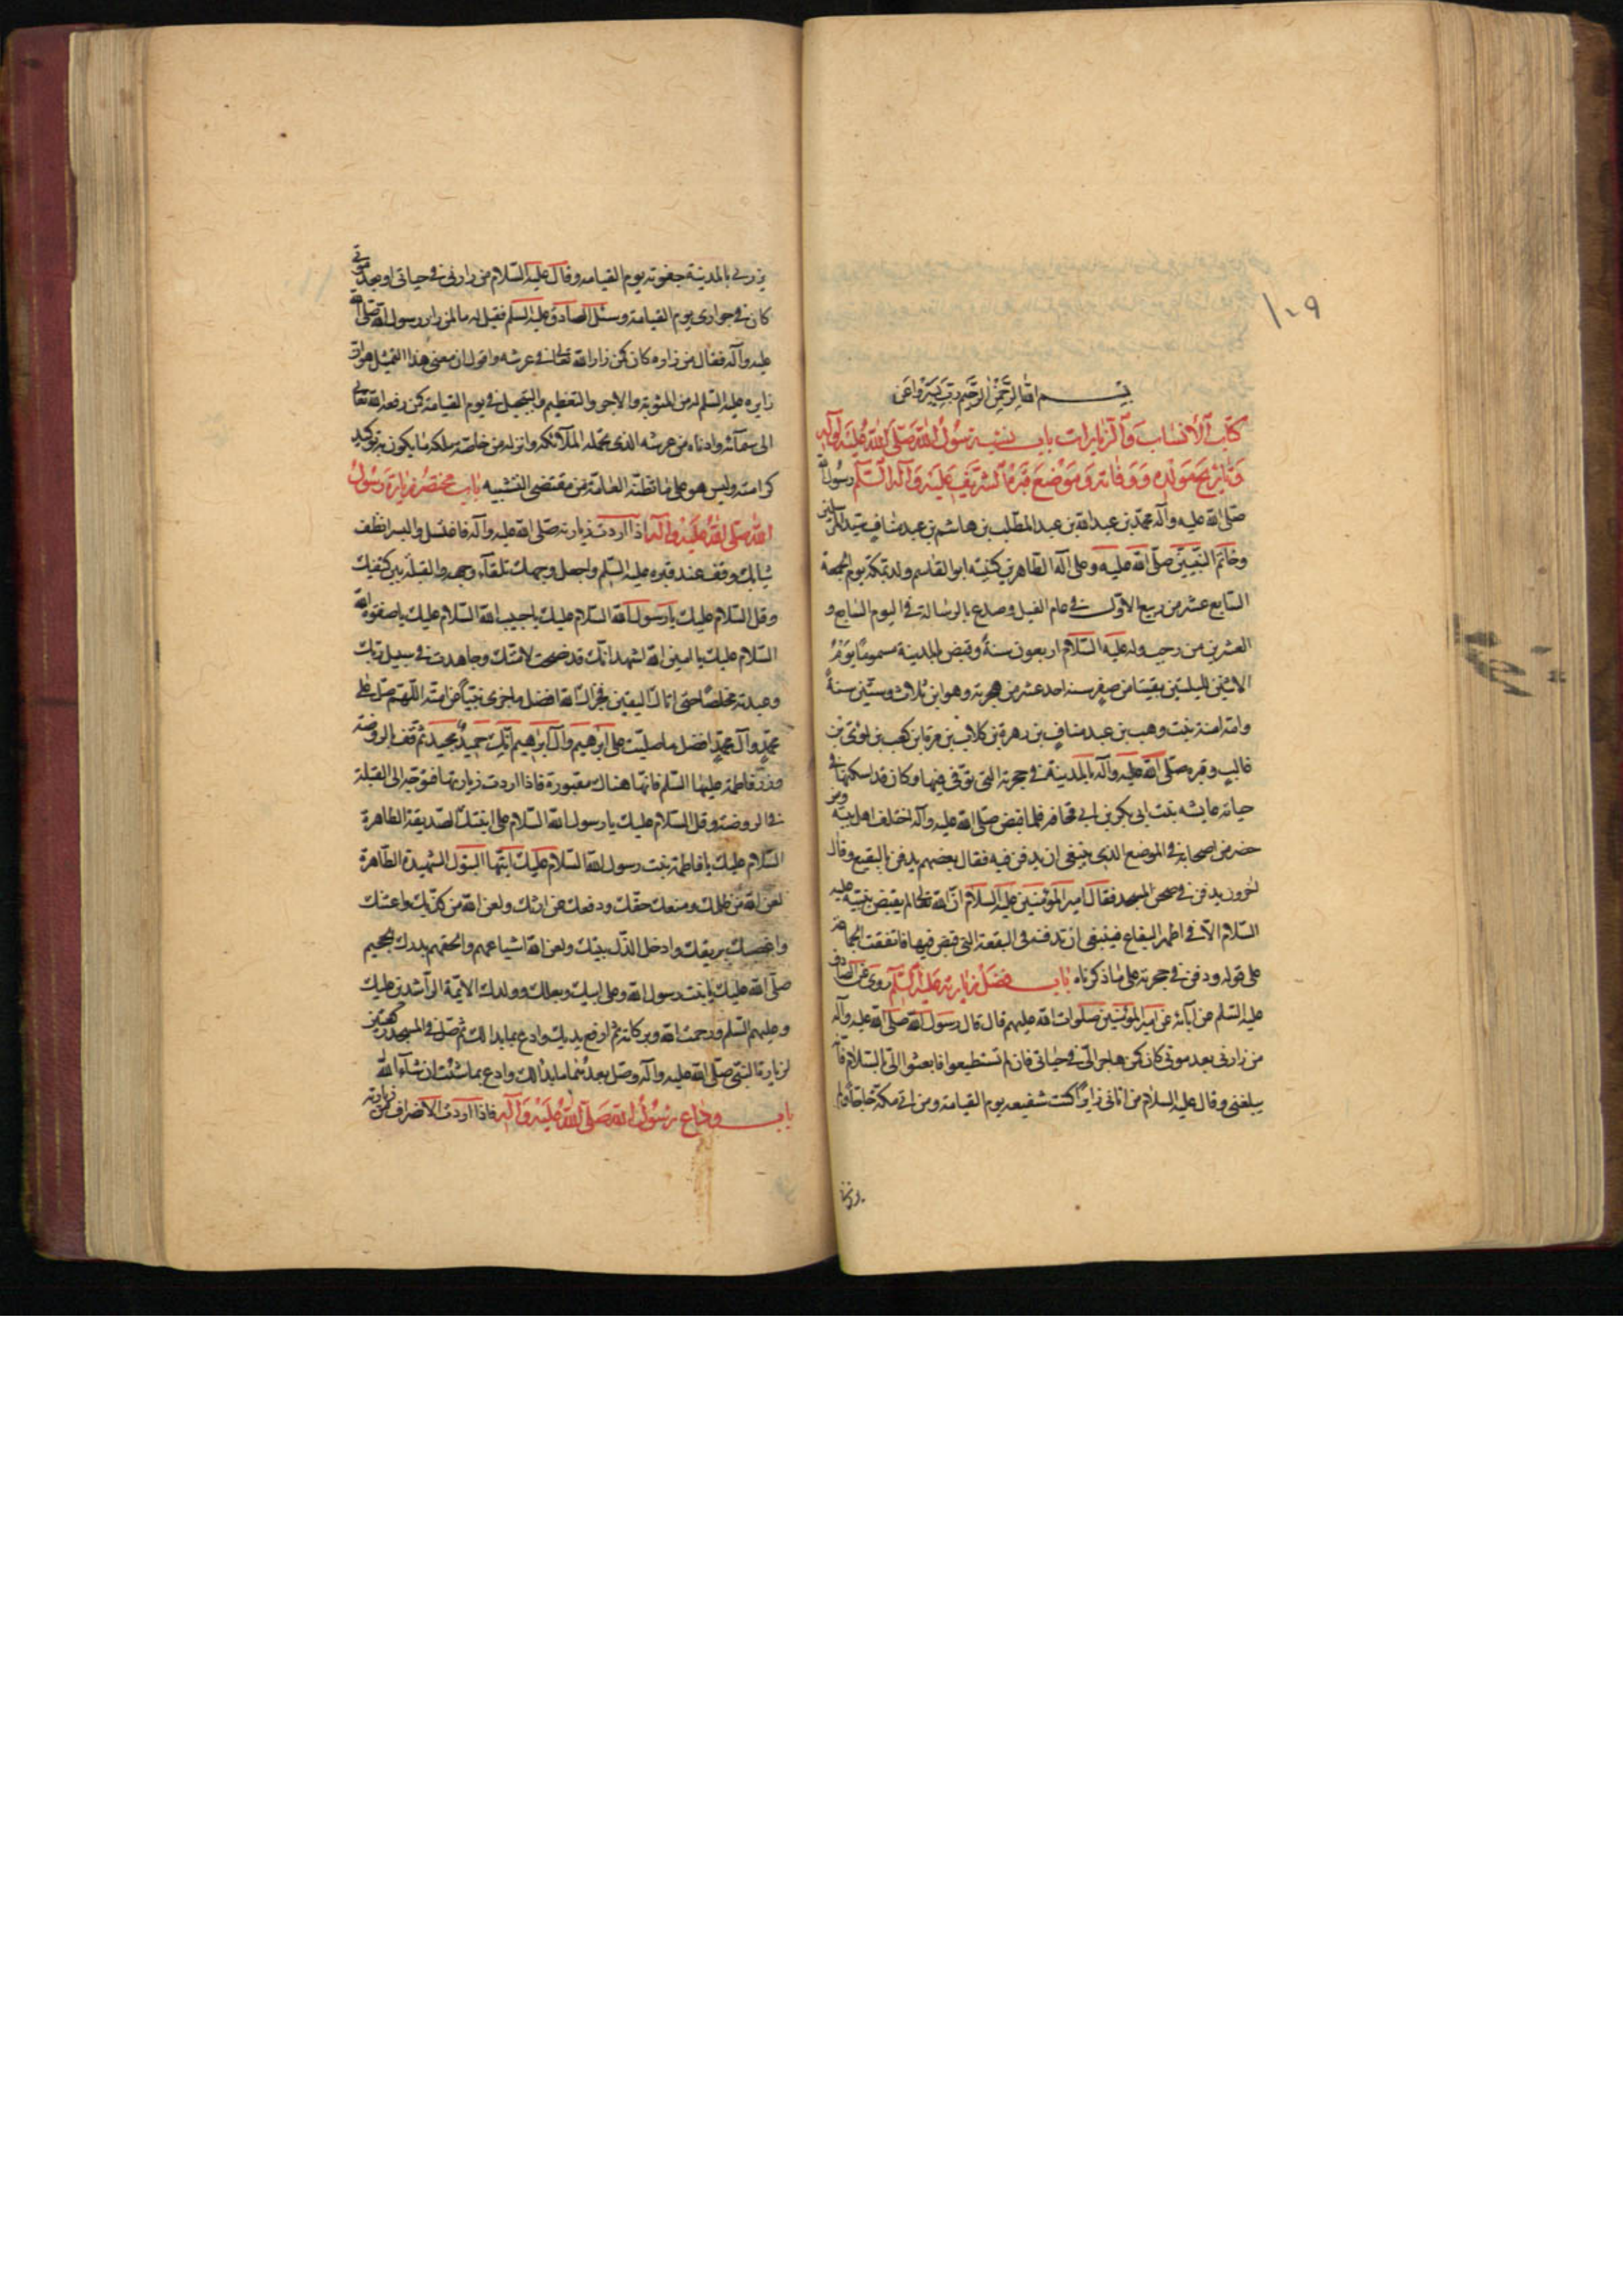 ١٠٩
بسم الله الرحمن الرحيم رب يسر واعن
كتاب الأنساب والزيارات باب نسبة رسول الله صلى الله عليه وآله
وتاريخ مولده ووفاته وموضع قبره الشريف عليه وآله السلم رسول الله
صلى الله عليه وآله محمد بن عبد الله بن عبد المطلب بن هاشم بن عبد مناف سيد المرسلين
وخاتم النبيين صلى الله عليه وعلى آله الطاهرين كنيته ابو القاسم ولد بمكة يوم الجمعة
السابع عشر من ربيع الاول في عام الفيل وصدع بالرسالة في اليوم السابع و
العشرين من رجب وله عليه السلام اربعون سنة وقبض بالمدينة مسموما يوم
الاثنين لليلتين بقيتا من صفر سنه احد عشر من هجرته وهو ابن ثلاث وستين سنة
وامه امنة بنت وهب بن عبد مناف بن زهرة بن كلاب بن مرة بن كعب بن لوئ بن
غالب وقبره صلى الله عليه وآله بالمدينة في حجرته التى توفى فيها وكان قد اسكنها في
حياته عايشه بنت ابى بكر بن ابي قحافه فلما قبض صلى الله عليه وآله اختلف اهل بيته ومن
حضر من اصحابه في الموضع الذى ينبغى ان يدفن فيه فقال بعضهم يدفن بالبقيع وقال
اخرون يدفن في صحن المسجد فقال امير المؤمنين عليه السلام ان الله تعالى لم يقبض نبيه عليه
السلام الا في اطهر البقاع فينبغى ان ندفنه في البقعة التى قبض فيها فاتفقت الجماعة
على قوله ودفن في حجرته على ما ذكرناه باب فضل زيارته عليه السلم روى عن الصادق
عليه السلم عن آبائه عن امير المؤمنين صلوات الله عليهم قال قال رسول الله صلى الله عليه وآله
من زارنى بعد موتى كان كمن هاجر الى في حياتى فان لم تستطيعوا فابعثوا الى بالسلام فانه
يبلغنى وقال عليه السلام من اتانى زايرا كنت شفيعه يوم القيامة ومن اتى مكة حاجا ولم
يزرنى
يزرني بالمدينة جفوته يوم القيامه وقال عليه السلام من زارنى في حياتى او بعد موتى
كان في جوارى يوم القيامة وسئل الصادق عليه السلم فقيل له ما لمن زار رسول الله صلى الله
عليه وآله فقال من زاره كان كمن زار الله تعالى في عرشه واقول ان معنى هذا التمثيل هو ان
زايره عليه السلم له من المثوبة والاجر والتعظيم والتبجيل في يوم القيامة كمن رفعه الله تعالى
الى سمائه وادناه من عرشه الذى تحمله الملآئكه وانزله من خاصة ملكه ما يكون به توكيد
كرامته وليس هو على ما تظنه العامة من مقتضى التشبيه باب مختصر زيارة رسول
الله صلى الله عليه وآله اذا اردت زيارته صلى الله عليه وآله فاغتسل والبس انظف
ثيابك وقف عند قبره عليه السلم واجعل وجهك تلقآء وجهه والقبلة بين كتفيك
وقل السلام عليك يا رسول الله السلام عليك يا حبيب الله السلام عليك يا صفوة الله
السلام عليك يا امين الله اشهد انك قد نصحت لامتك وجاهدت في سبيل ربك
وعبدته مخلصا حتى اتاك اليقين فجزاك الله افضل ما جزى نبيا عن امته اللهم صل على
محمد وآل محمد افضل ما صليت على ابرهيم وآل ابرهيم انك حميد مجيد ثم قف بالروضة
وزر فاطمة عليها السلم فانها هناك مقبورة فاذا اردت زيارتها فتوجه الى القبلة
في الروضة وقل السلام عليك يا رسول الله السلام على ابنتك الصديقة الطاهرة
السلام عليك يا فاطمة بنت رسول الله السلام عليك ايتها البتول الشهيدة الطاهرة
لعن الله من ظلمك ومنعك حقك ودفعك عن ارثك ولعن الله من كذبك واعنتك
واغصك بريقك وادخل الذل بيتك ولعن الله اشياعهم والحقهم بدرك الجحيم
صلى الله عليك يا بنت رسول الله وعلى ابيك وبعلك وولدك الائمة الراشدين عليك
وعليهم السلم ورحمت الله وبركاته ثم ارفع يديك وادع بما بدا لك ثم صل في المسجد ركعتين
لزيارة النبى صلى الله عليه وآله وصل بعدهما ما بدا لك وادع بما شئت ان شآء الله
باب وداع رسول الله صلى الله عليه وآله فاذا اردت الانصراف من زيارته